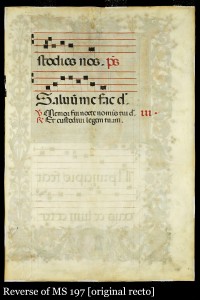 stodies nos. ps
Salvum me fac d.
Memor fui nocte nominis tui d. III
Et custodivi legem tuam.
Reverse of MS 197 [original recto]